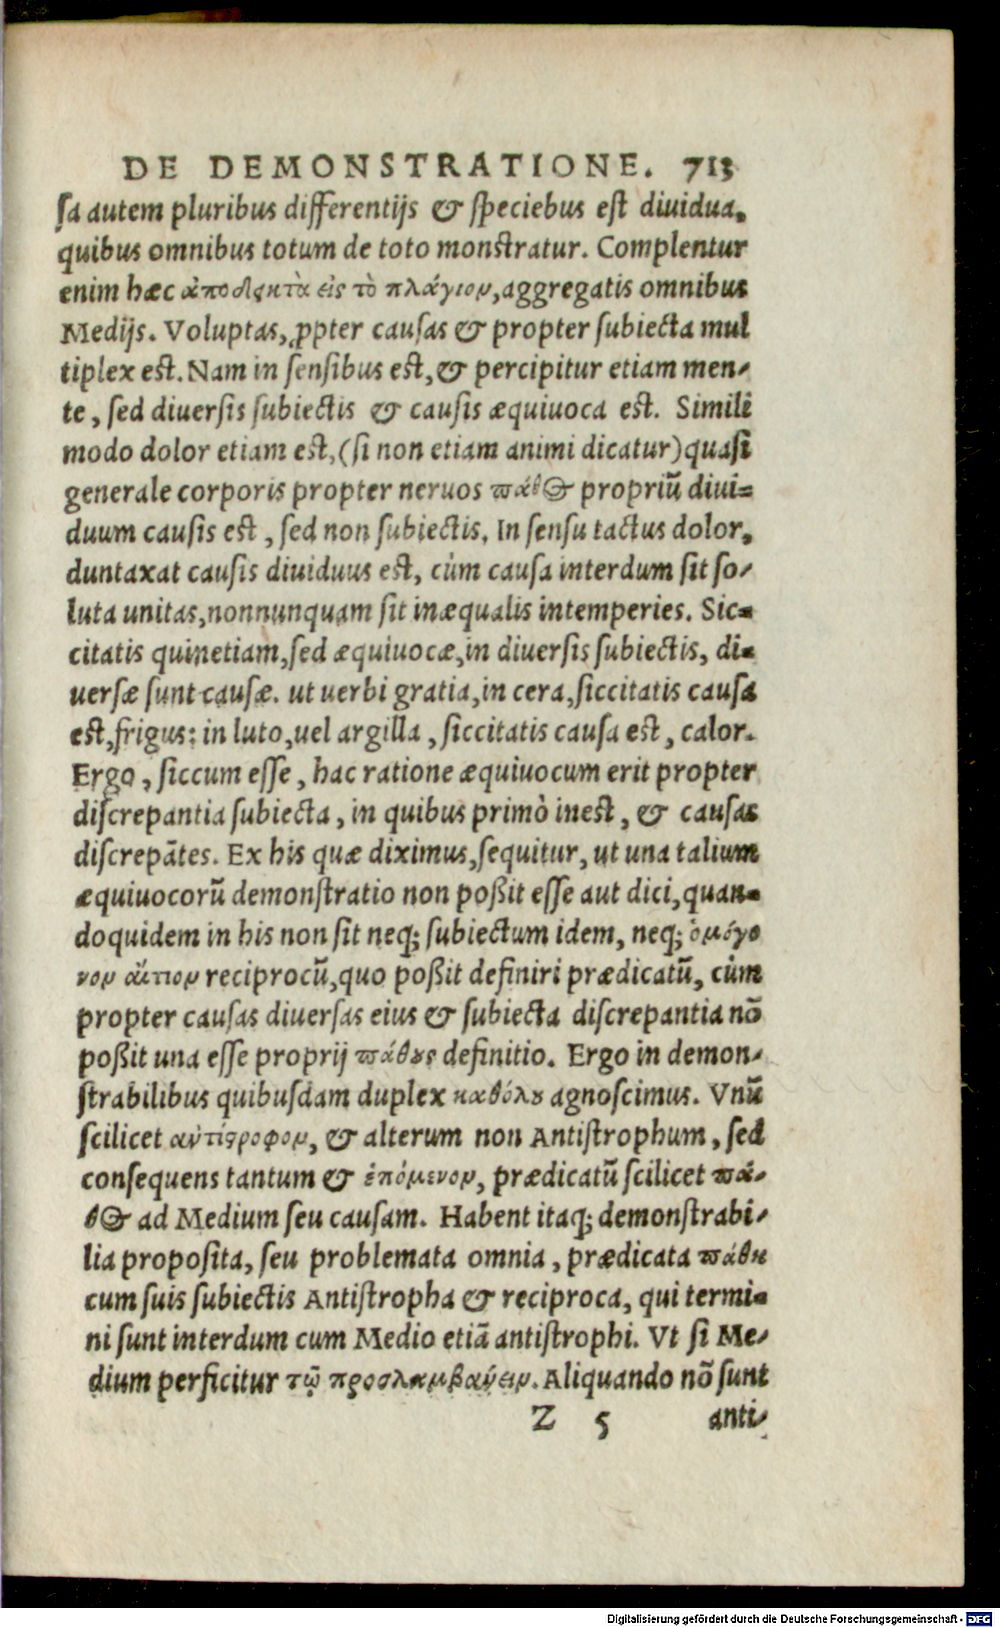 DE DEMONSTRATIONE. 713
sa autem pluribus differentijs & speciebus est diuidua,
quibus omnibus totum de toto monstratur. Complentur
enim hæc ἀποδεικτὰ εἰς τὸ πλάγιον, aggregatis omnibus
Medijs. Voluptas, ꝓpter causas & propter subiecta mul
tiplex est. Nam in sensibus est, & percipitur etiam men-
te, sed diuersis subiectis & causis æquiuoca est. Simili
modo dolor etiam est, (si non etiam animi dicatur) quasi
generale corporis propter neruos πάθος propriũ diui=
duum causis est, sed non subiectis. In sensu tactus dolor,
duntaxat causis diuiduus est, cùm causa interdum sit so-
luta unitas, nonnunquam sit inæqualis intemperies. Sic=
citatis quinetiam, sed æquiuocæ, in diuersis subiectis, di=
uersæ sunt causæ. ut uerbi gratia, in cera, siccitatis causa
est, frigus: in luto, uel argilla, siccitatis causa est, calor.
Ergo, siccum esse, hac ratione æquiuocum erit propter
discrepantia subiecta, in quibus primò inest, & causas
discrepãtes. Ex his quæ diximus, sequitur, ut una talium
æquiuocorũ demonstratio non poßit esse aut dici, quan=
doquidem in his non sit neq; subiectum idem, neq; ὁμόγο
νον αἴτιον reciprocũ, quo poßit definiri prædicatũ, cùm
propter causas diuersas eius & subiecta discrepantia nõ
poßit una esse proprij πάθους definitio. Ergo in demon-
strabilibus quibusdam duplex καθόλου agnoscimus. Vnũ
scilicet ἀντίστροφον, & alterum non Antistrophum, sed
consequens tantum & ἑπόμενον, prædicatũ scilicet πά-
θος ad Medium seu causam. Habent itaq; demonstrabi-
lia proposita, seu problemata omnia, prædicata πάθη
cum suis subiectis Antistropha & reciproca, qui termi=
ni sunt interdum cum Medio etiã antistrophi. Vt si Me-
dium perficitur τῷ προσλαμβάνειν. Aliquando nõ sunt
Z 5 anti-
Digitalisierung gefördert durch die Deutsche Forschungsgemeinschaft - DFG